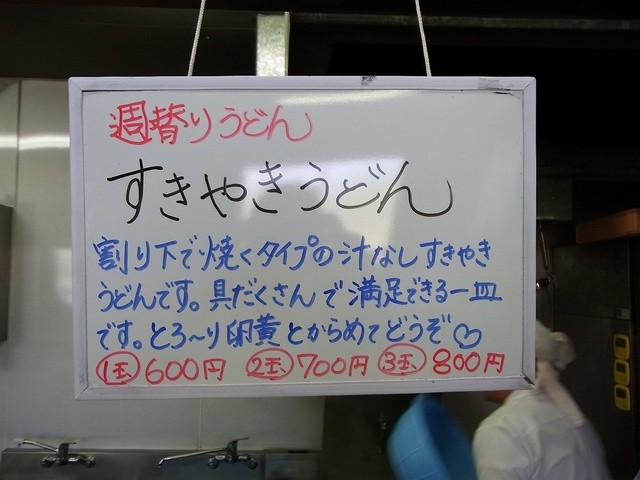 週替りうどん
すきやきうどん
割り下で焼くタイプの汁なしすきやき
うどんです。具だくさんで満足できる一皿
です。とろ〜り卵黄とからめてどうぞ♡
1玉 600円 2玉 700円 3玉 800円